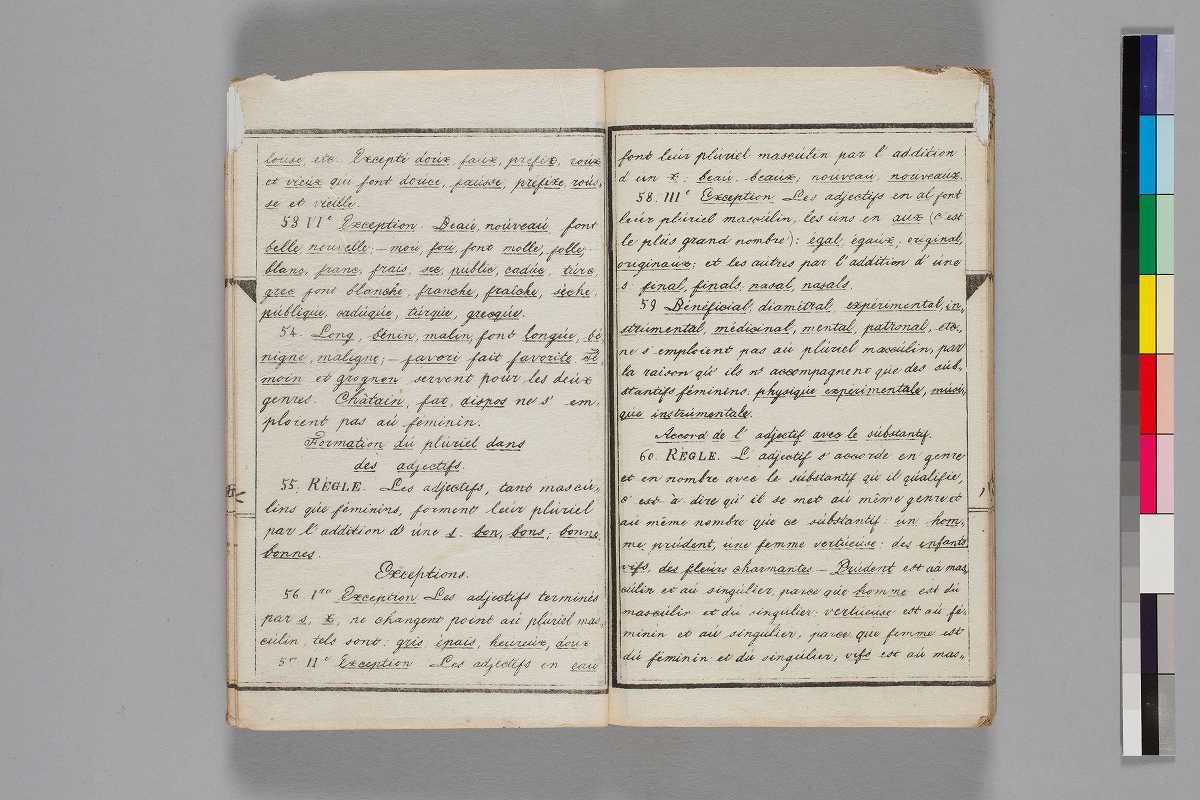 louse, etc. Excepté doux, faux, préfix, roux
et vieux qui font douce, fausse, préfixe, rous-
se et vieille.
53 VIe Exception. Beau, nouveau font
belle, nouvelle; — mou, fou, font molle, folle;
blanc, franc, frais, sec, public, caduc, turc,
grec font blanche, franche, fraîche, sèche,
publique, caduque, turque, grecque.
54. Long, bénin, malin, font longue, bé-
nigne, maligne; — favori fait favorite. Té-
moin et grognon servent pour les deux
genres. Châtain, fat, dispos ne s'em-
ploient pas au féminin.
Formation du pluriel dans
des adjectifs.
55. RÈGLE. Les adjectifs, tant mascu-
lins que féminins, forment leur pluriel
par l'addition d'une s. bon, bons; bonne,
bonnes.
Exceptions.
56 1re Exception Les adjectifs terminés
par s, x, ne changent point au pluriel mas-
culin, tels sont: gris, épais, heureux, doux
57 IIe Exception Les adjectifs en eau
font leur pluriel masculin par l'addition
d'un x: beau, beaux; nouveau, nouveaux.
58. IIIe Exception Les adjectifs en al font
leur pluriel masculin, les uns en aux (c'est
le plus grand nombre): égal, égaux, original,
originaux; et les autres par l'addition d'une
s final, finals, nasal, nasals.
59 Bénéficial, diamétral, expérimental, in-
strumental, médicinal, mental, patronal, etc.,
ne s'emploient pas au pluriel masculin, par
la raison qu'ils n'accompagnent que des sub-
stantifs féminins: physique expérimentale, musi-
que instrumentale.
Accord de l'adjectif avec le substantif.
60. RÈGLE. L'adjectif s'accorde en genre
et en nombre avec le substantif qu'il qualifie,
c'est à dire qu'il se met au même genre et
au même nombre que ce substantif: un hom-
me prudent, une femme vertueuse; des enfants
vifs, des fleurs charmantes — Prudent est au mas-
culin et au singulier, parce que homme est du
masculin et du singulier; vertueuse est au fé-
minin et au singulier, parce que femme est
du féminin et du singulier; vifs est au mas-